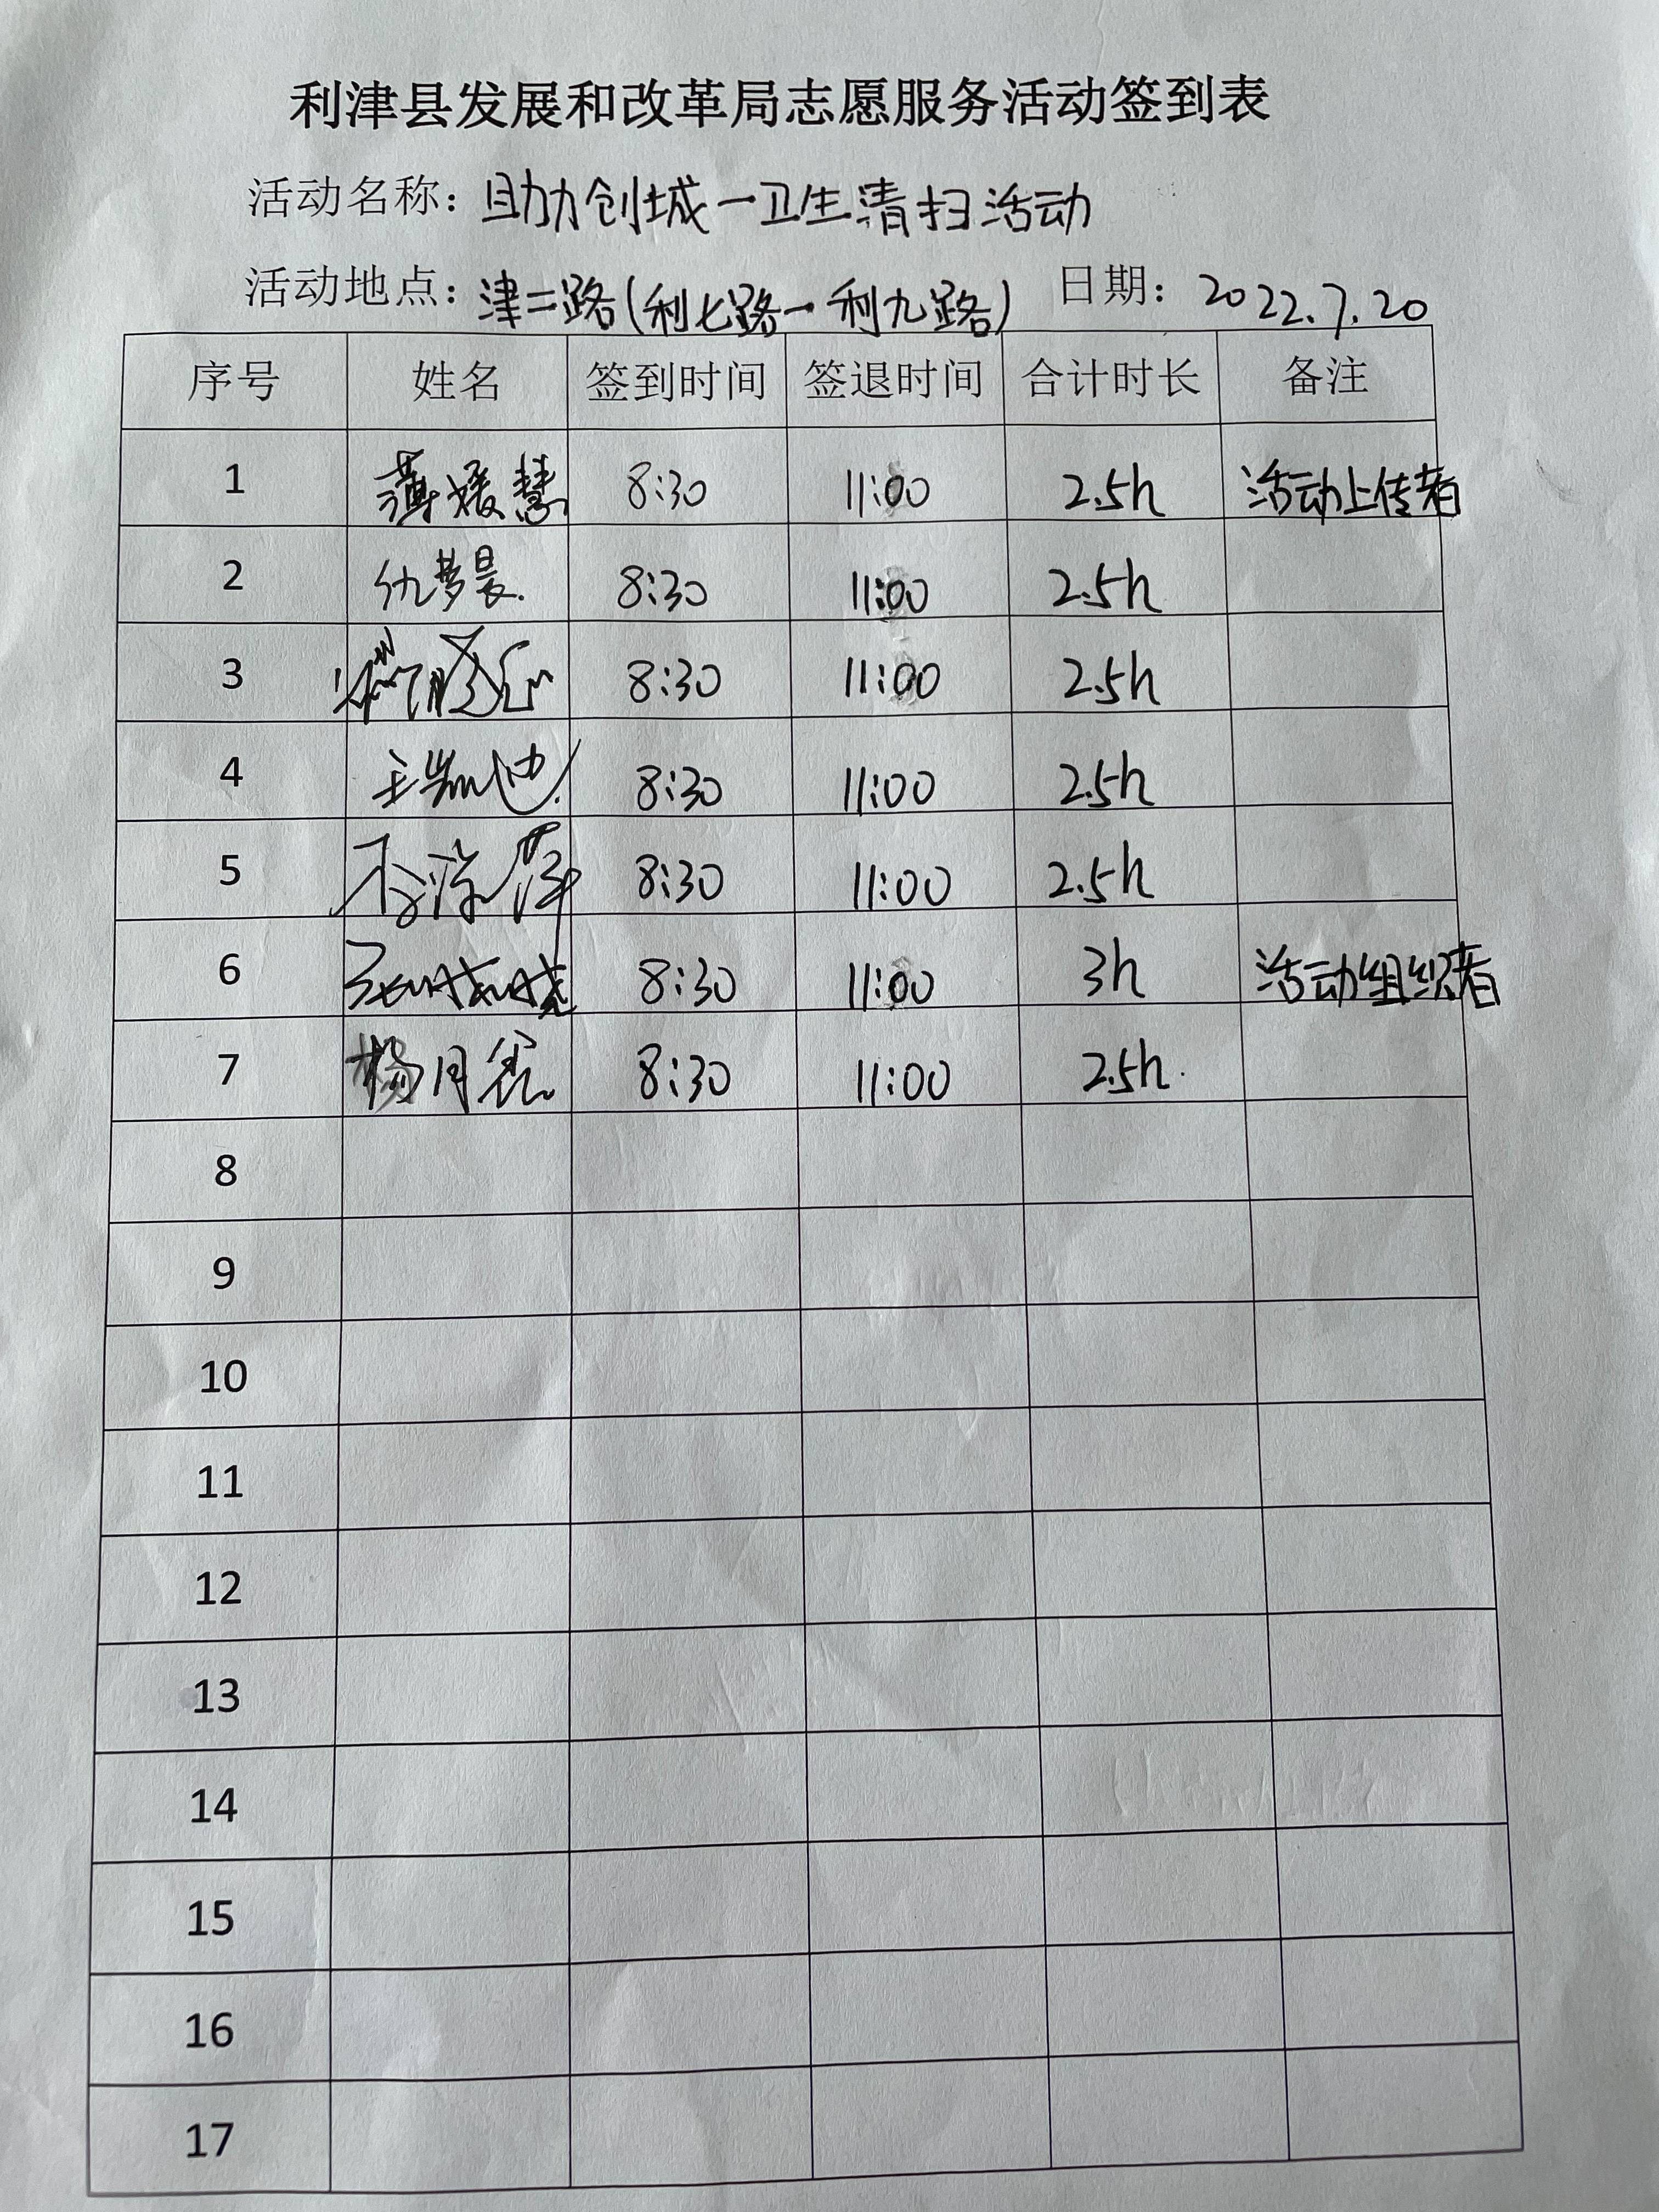 利津县发展和改革局志愿服务活动签到表
活动名称：助力创城一卫生清扫活动
活动地点：津二路(利七路一利九路) 日期：2022.7.20
序号 姓名 签到时间 签退时间 合计时长 备注
1 薄媛慧 8:30 11:00 2.5h 活动上传者
2 仇梦晨 8:30 11:00 2.5h
3 8:30 11:00 2.5h
4 8:30 11:00 2.5h
5 8:30 11:00 2.5h
6 8:30 11:00 3h 活动组织者
7 8:30 11:00 2.5h
8
9
10
11
12
13
14
15
16
17